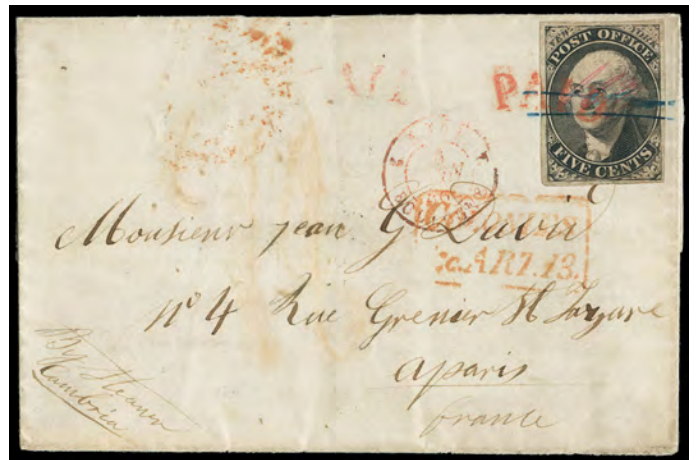 POST OFFICE
FIVE CENTS
PAID
COLONIES
&c. ART. 13.
Monsieur jean G David
nº 4 Rue Grenier St Lazare
a paris
france
By Steamer
Cambria